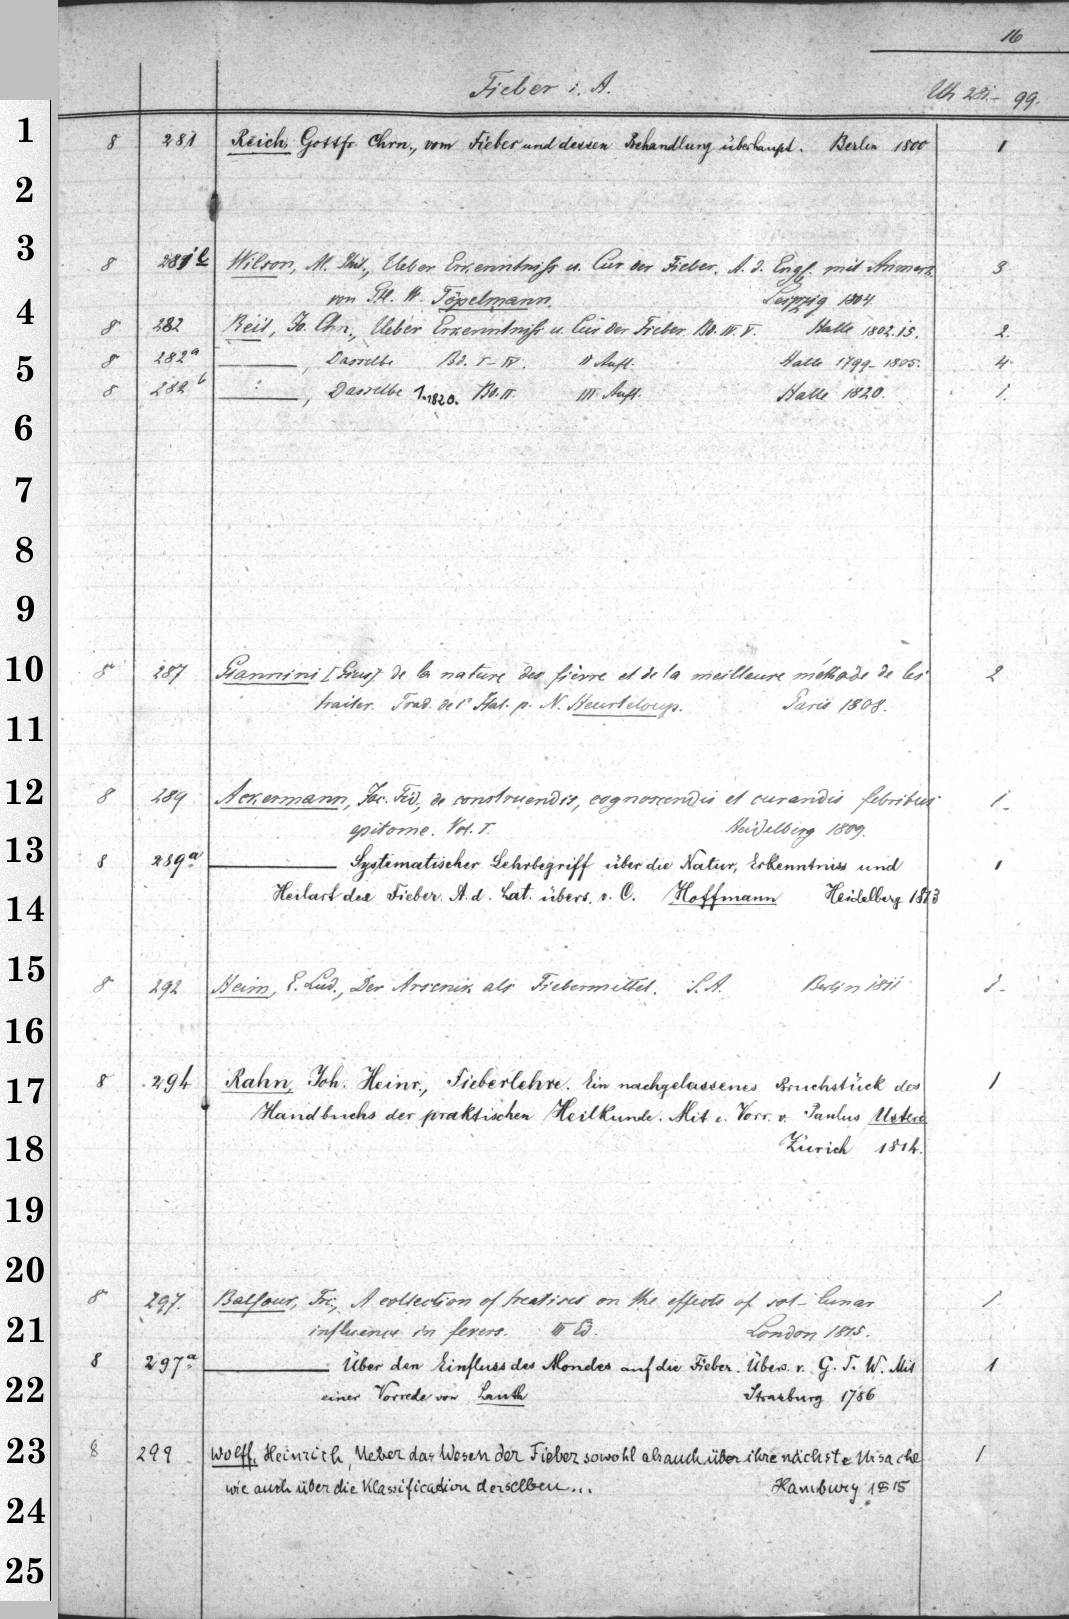 16
Fieber i. A. Uh 281.– 99.
1 8 281 Reich, Gottfr. Chrn., vom Fieber und dessen Behandlung überhaupt. Berlin 1800 1
2
3 8 281 b Wilson, M. Phil., Ueber Erkenntniss u. Cur der Fieber. A. d. Engl. mit Anmerk. 3
von Th. W. Töpelmann. Leipzig 1804.
4 8 282 Reil, Jo. Chn., Ueber Erkenntniss u. Cur der Fieber. Bd. IV. V. Halle 1802.15. 2.
5 8 282a ———, Dasselbe Bd. I–IV. II Aufl. Halle 1799–1805. 4
8 282b ———, Dasselbe 1.1820. Bd. II. III Aufl. Halle 1820. 1.
6
7
8
9
10 8 287 Giannini [Gius] de la nature des fièvre et de la meilleure méthode de les 2
traiter. Trad. de l' Ital. p. N. Heurteloup. Paris 1808.
11
12 8 289 Ackermann, Jac. Fid., de construendis, cognoscendis et curandis febribus 1.
epitome. Vol. I. Heidelberg 1809.
13 8 289a ——— Systematischer Lehrbegriff über die Natur, Erkenntniss und 1
14 Heilart der Fieber. A. d. Lat. übers. v. C. Hoffmann Heidelberg 1813
15 8 292 Heim, E. Lud., Der Arsenik als Fiebermittel. S. A. Berlin 1811 1.
16
17 8 294 Rahn, Joh. Heinr., Fieberlehre. Ein nachgelassenes Bruchstück des 1
Handbuchs der praktischen Heilkunde. Mit e. Vorr. v. Paulus Usteri
18 Zürich 1814.
19
20
8 297. Balfour, Frc., A collection of treatises on the effects of sol-lunar 1.
21 influence in fevers. III Ed. London 1815.
8 297a ——— Über den Einfluss des Mondes auf die Fieber. Übers. v. G. T. W. Mit 1
22 einer Vorrede von Lauth Strasburg 1786
23 8 299 Wolff, Heinrich, Ueber das Wesen der Fieber sowohl als auch über ihre nächste Ursache 1
wie auch über die Klassification derselben... Hamburg 1815
24
25